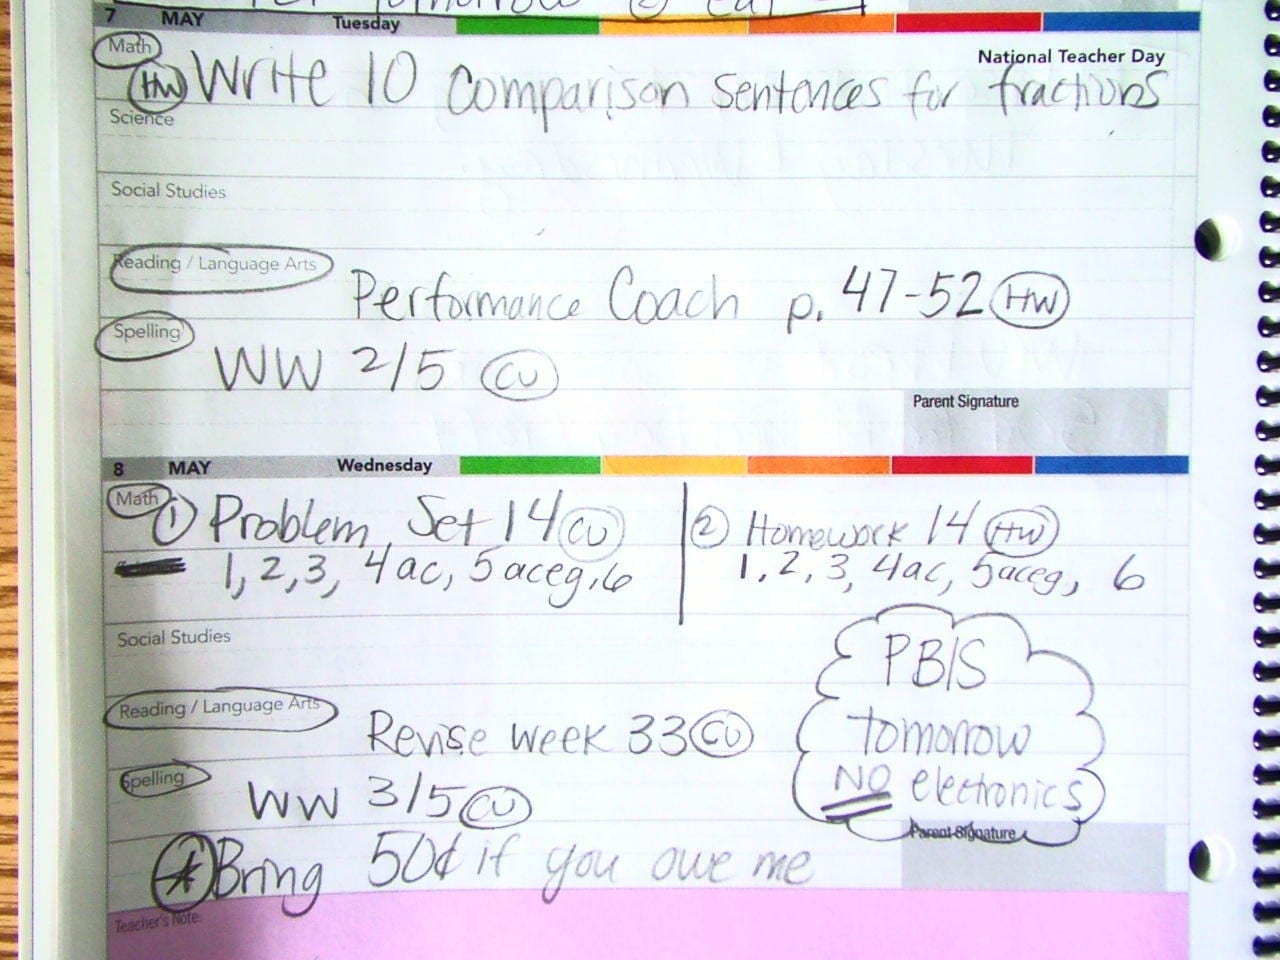 tomorrow
7 MAY Tuesday
National Teacher Day
Math
HW Write 10 comparison sentences for fractions
Science
Social Studies
Reading / Language Arts
Performance Coach p. 47-52 HW
Spelling
WW 2/5 CU
Parent Signature
8 MAY Wednesday
Math
1 Problem Set 14 CU
1, 2, 3, 4ac, 5aceg, 6
2 Homework 14 HW
1, 2, 3, 4ac, 5aceg, 6
Social Studies
PBIS
tomorrow
NO electronics
Reading / Language Arts
Revise week 33 CU
Spelling
WW 3/5 CU
Parent Signature
* Bring 50¢ if you owe me
Teacher's Note: